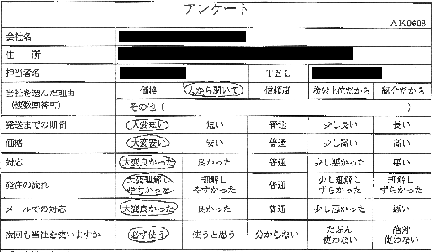 アンケート
AK0603
会社名
住 所
担当者名 TEL
当社を選んだ理由 価格 人から聞いて 信頼性 検索上位だから 験介だから
(複数回答可) その他 ( )
発送までの期間 大変短い 短い 普通 少し長い 長い
価格 大変安い 安い 普通 少し高い 高い
対応 大変良かった 良かった 普通 少し悪かった 悪い
発注の流れ 大変理解しやすかった 理解しやすかった 普通 少し理解しずらかった 理解しずらかった
メールでの対応 大変良かった 良かった 普通 少し悪かった 悪い
次回も当社を使いますか 必ず使う 使うと思う 分からない たぶん使わない 絶対使わない